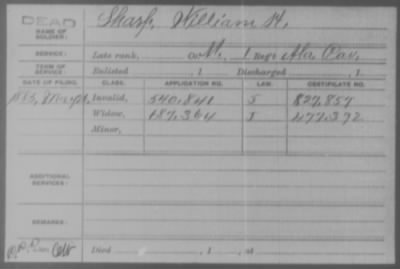 DEAD
NAME OF SOLDIER: Sharp, William H.
SERVICE: Late rank, Co. M, 1 Reg't Ala. Cav.
TERM OF SERVICE: Enlisted , 1 Discharged , 1
DATE OF FILING. CLASS. APPLICATION NO. LAW. CERTIFICATE NO.
1885, May Invalid, 540.841 J 827.857
Widow, 787.364 J 477.372
Minor,
ADDITIONAL SERVICES:
REMARKS:
Died , 1 , at